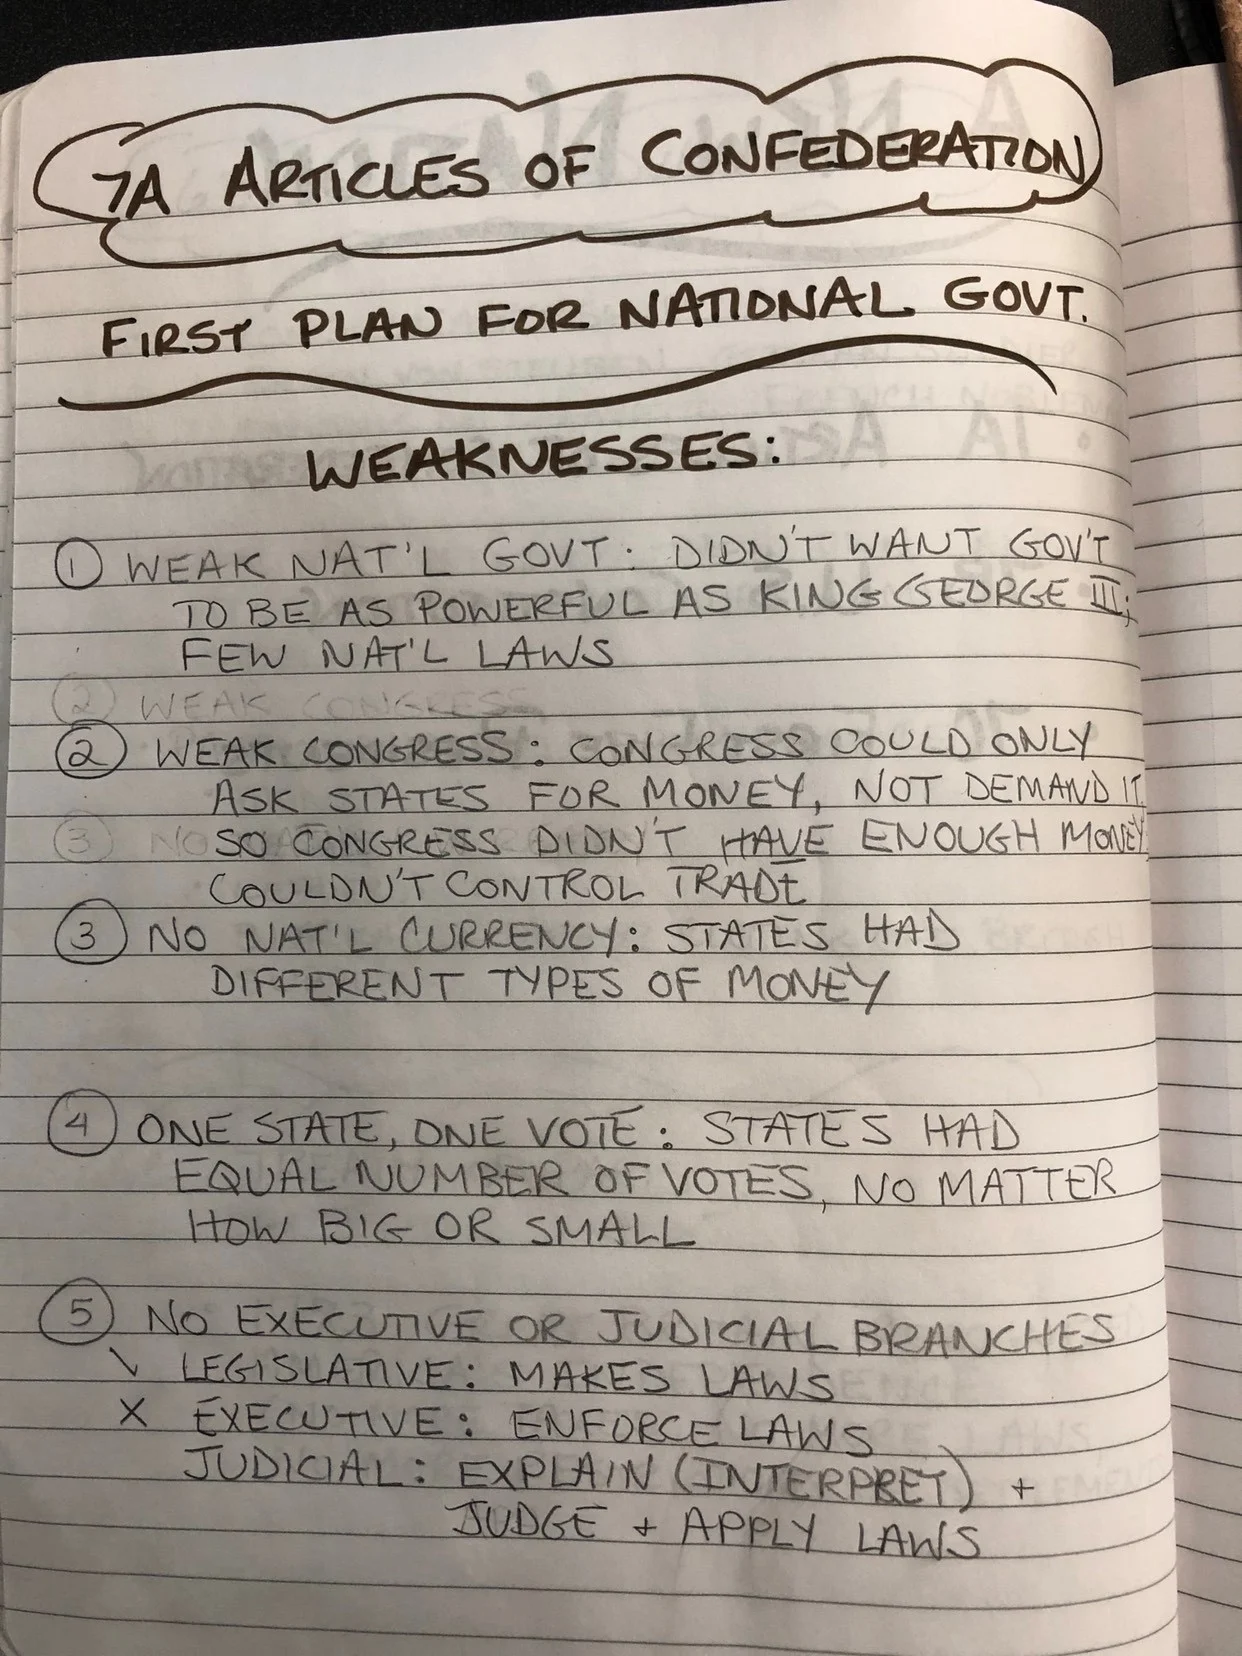 7A ARTICLES OF CONFEDERATION
FIRST PLAN FOR NATIONAL GOVT.
WEAKNESSES:
① WEAK NAT'L GOVT: DIDN'T WANT GOV'T
TO BE AS POWERFUL AS KING GEORGE III;
FEW NAT'L LAWS
② WEAK CONGRESS
② WEAK CONGRESS: CONGRESS COULD ONLY
ASK STATES FOR MONEY, NOT DEMAND IT
③ NO
SO CONGRESS DIDN'T HAVE ENOUGH MONEY
COULDN'T CONTROL TRADE
③ NO NAT'L CURRENCY: STATES HAD
DIFFERENT TYPES OF MONEY
④ ONE STATE, ONE VOTE: STATES HAD
EQUAL NUMBER OF VOTES, NO MATTER
HOW BIG OR SMALL
⑤ NO EXECUTIVE OR JUDICIAL BRANCHES
\ LEGISLATIVE: MAKES LAWS
X EXECUTIVE: ENFORCE LAWS
JUDICIAL: EXPLAIN (INTERPRET) +
JUDGE + APPLY LAWS